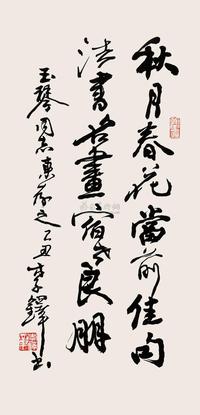 秋月春花當前佳句
法書名畫宿世良朋
玉琴同志惠存之 乙丑 李鐸書